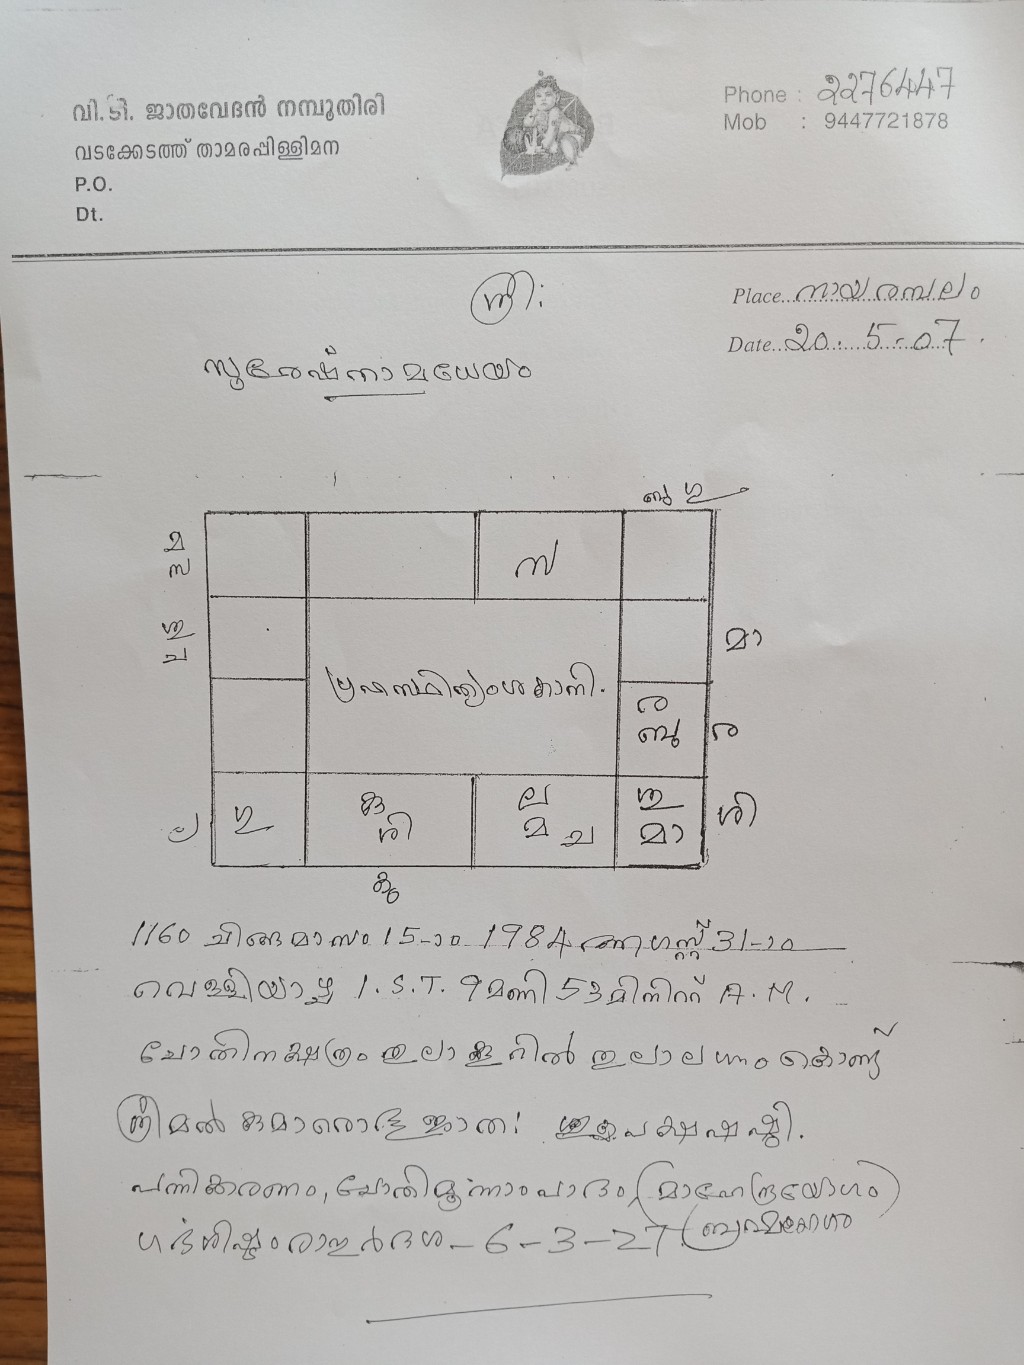 വി.ടി. ജാതവേദൻ നമ്പൂതിരി
വടക്കേടത്ത് താമരപ്പിള്ളിമന
P.O.
Dt.
Phone : 2276447
Mob : 9447721878
ശ്രീ:
Place.. നായരമ്പലം
Date.. 20. 5-07.
സുരേഷ്നാമധേയം
ബു ഗു
മ
സ
സ
ശു
ച
മാ
ര
ബു
ര
ല
ഗു
കു
ശി
ല
മ ച
ശു
മാ
ശി
കു
1160 ചിങ്ങമാസം 15-ാം 1984 ആഗസ്റ്റ് 31-ാം
വെള്ളിയാഴ്ച I.S.T. 9 മണി 53 മിനിറ്റ് A.M.
ചോതിനക്ഷത്രം തുലാക്കൂറിൽ തുലാലഗ്നം കൊണ്ട്
ശ്രീമൽ കുമാരൊ ജാത: ശുക്ലപക്ഷഷഷ്ഠി.
പന്നിക്കരണം, ചോതിമൂന്നാംപാദം, (മാഹേന്ദ്രയോഗം)
ഗർഭശിഷ്ടം രാഹുർദശ - 6 - 3 - 27 (ബ്രഹ്മയോഗം